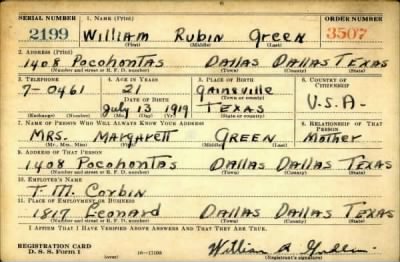 SERIAL NUMBER 1. NAME (Print) ORDER NUMBER
2199 William Rubin Green 3507
(First) (Middle) (Last)
2. ADDRESS (Print)
1408 Pocohontas Dallas Dallas Texas
(Number and street or R. F. D. number) (Town) (County) (State)
3. TELEPHONE 4. AGE IN YEARS 5. PLACE OF BIRTH 6. COUNTRY OF CITIZENSHIP
7-0461 21 Gainsville U.S.A.
DATE OF BIRTH (Town or county)
July 13 1919 Texas
(Exchange) (Number) (Mo.) (Day) (Yr.) (State or country)
7. NAME OF PERSON WHO WILL ALWAYS KNOW YOUR ADDRESS 8. RELATIONSHIP OF THAT PERSON
Mrs. Margarett Green Mother
(Mr., Mrs., Miss) (First) (Middle) (Last)
9. ADDRESS OF THAT PERSON
1408 Pocohontas Dallas Dallas Texas
(Number and street or R. F. D. number) (Town) (County) (State)
10. EMPLOYER'S NAME
T. M. Corbin
11. PLACE OF EMPLOYMENT OR BUSINESS
1817 Leonard Dallas Dallas Texas
(Number and street or R. F. D. number) (Town) (County) (State)
I AFFIRM THAT I HAVE VERIFIED ABOVE ANSWERS AND THAT THEY ARE TRUE.
REGISTRATION CARD
D. S. S. FORM 1 (over) William R
(Registrant's signature)